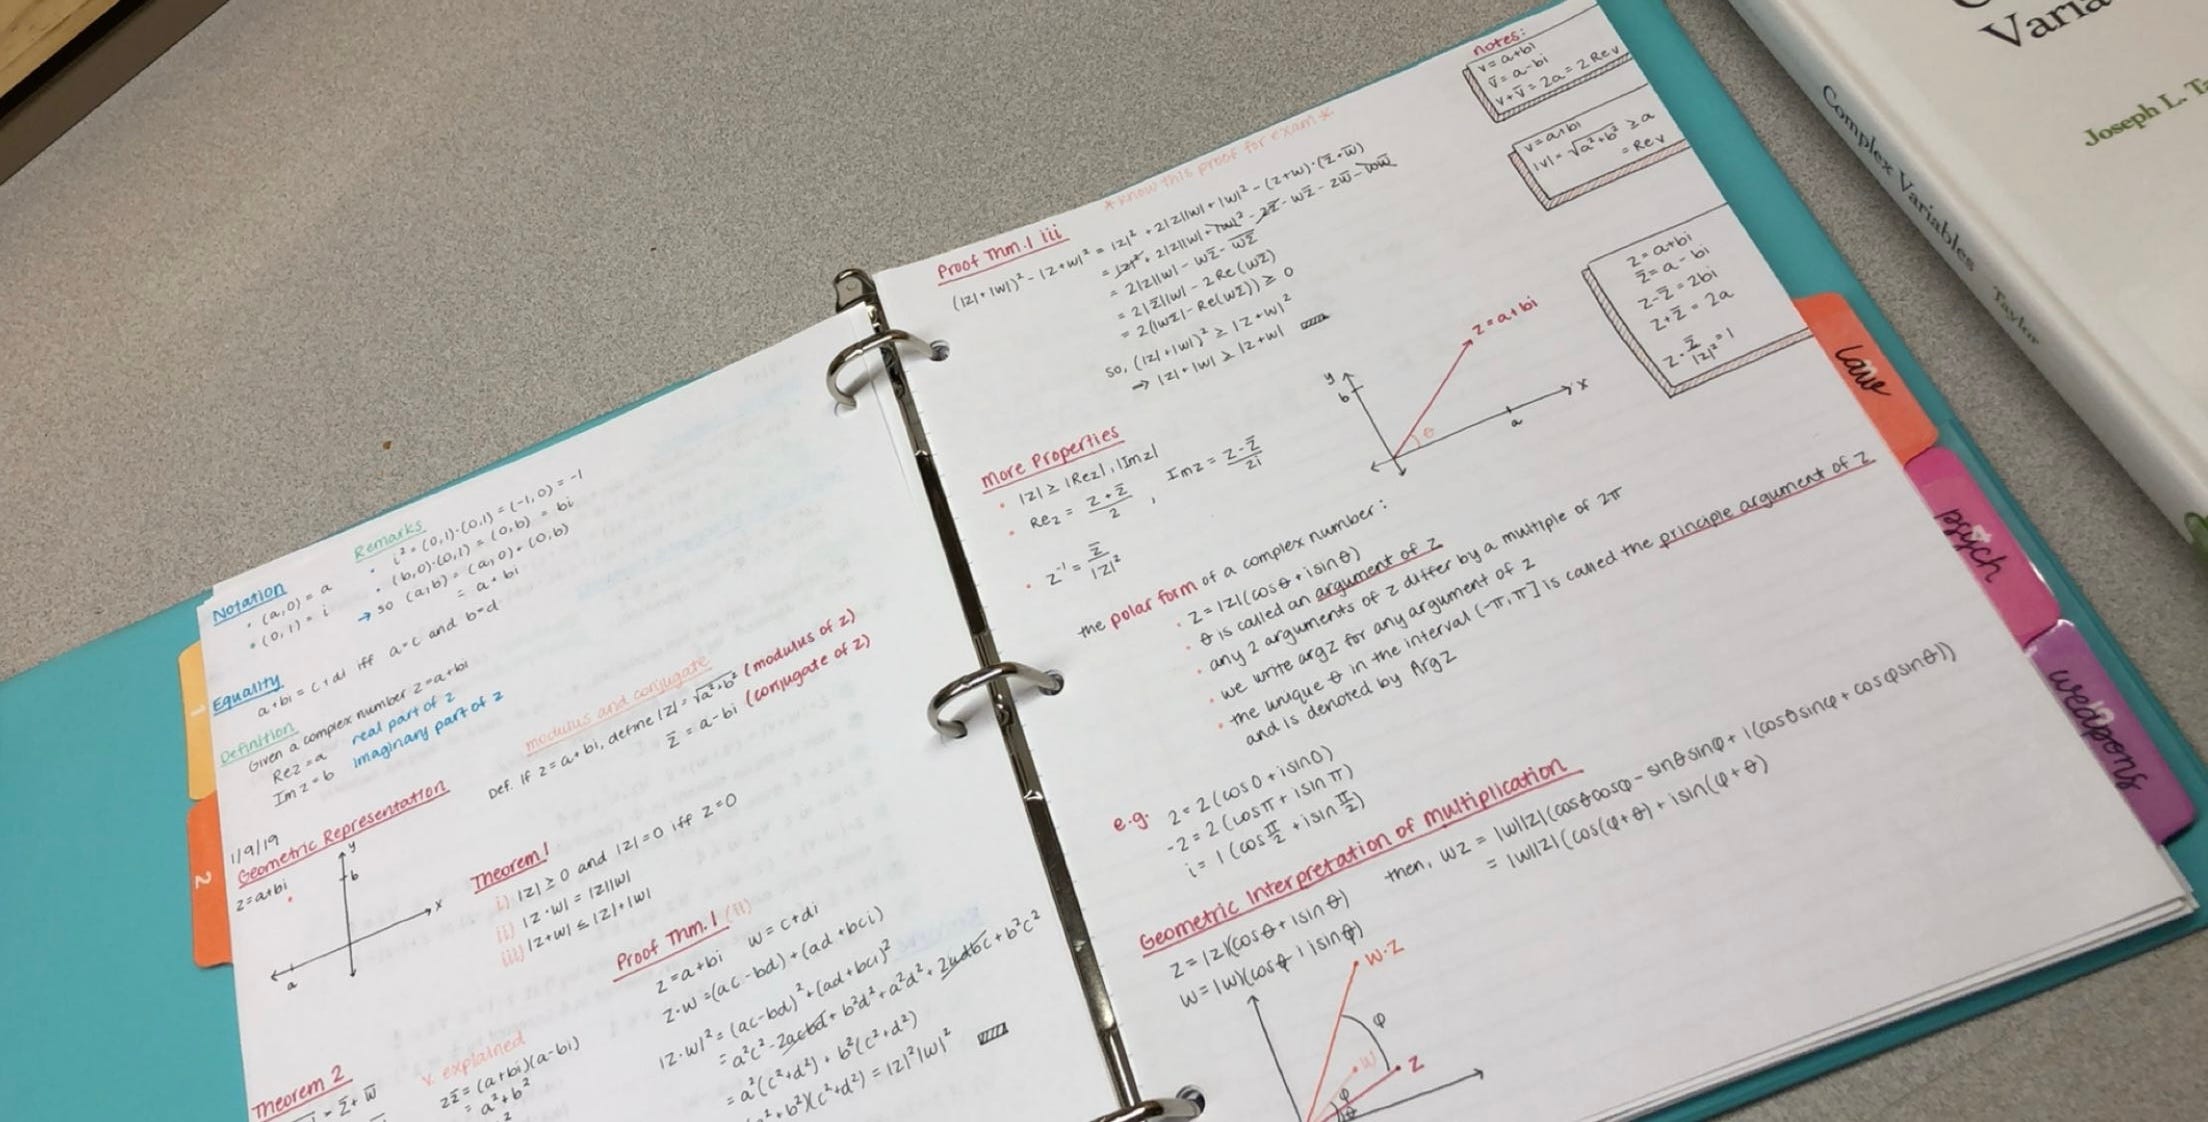 Notation
• (a,0) = a
• (0,1) = i
Remarks
• i² = (0,1)·(0,1) = (-1,0) = -1
• (b,0)·(0,1) = (0,b) = bi
→ so (a,b) = (a,0)+(0,b)
= a+bi
Equality
a+bi = c+di iff a=c and b=d
Definition
Given a complex number z=a+bi
Re z = a real part of z
Im z = b imaginary part of z
modulus and conjugate
Def. If z=a+bi, define |z| = √a²+b² (modulus of z)
z̅ = a-bi (conjugate of z)
1/9/19
Geometric Representation
z=a+bi
y
b
x
a
Theorem 1
i) |z| ≥ 0 and |z|=0 iff z=0
ii) |z·w| = |z||w|
iii) |z+w| ≤ |z|+|w|
Proof Thm.1 (ii)
z=a+bi w=c+di
z·w = (ac-bd)+(ad+bci)
|z·w|² = (ac-bd)²+(ad+bci)²
= a²c²-2acbd+b²d²+a²d²+2adbc+b²c²
= a²(c²+d²)+b²(c²+d²)
²+b²)(c²+d²) = |z|²|w|²
Theorem 2
= z̅+w̅
v. explained
zz̅ = (a+bi)(a-bi)
= a²+b²
1
2
*know this proof for exam*
Proof Thm.1 iii
(|z|+|w|)²-|z+w|² = |z|²+2|z||w|+|w|²-(z+w)·(z̅+w̅)
= |z|²+2|z||w|+|w|²-zz̅-wz̅-zw̅-ww̅
= 2|z||w|-wz̅-wz̅
= 2|z̅||w|-2Re(wz̅)
= 2(|wz̅|-Re(wz̅)) ≥ 0
so, (|z|+|w|)² ≥ |z+w|²
⇒ |z|+|w| ≥ |z+w|
notes:
v=a+bi
v̅=a-bi
v+v̅=2a=2Re v
v=a+bi
|v|=√a²+b² ≥ a
= Re v
z=a+bi
z̅=a-bi
z-z̅=2bi
z+z̅=2a
z·z̅/|z|²=1
y
b
z=a+bi
θ
a
x
More Properties
• |z| ≥ |Rez|, |Imz|
• Rez = z+z̅/2, Imz = z-z̅/2i
• z⁻¹ = z̅/|z|²
the polar form of a complex number:
• z=|z|(cosθ+isinθ)
• θ is called an argument of z
• any 2 arguments of z differ by a multiple of 2π
• we write argz for any argument of z
• the unique θ in the interval (-π,π] is called the principle argument of z
and is denoted by Argz
e.g. 2=2(cos0+isin0)
-2=2(cosπ+isinπ)
i=1(cos π/2 + isin π/2)
Geometric Interpretation of multiplication
z=|z|(cosθ+isinθ)
then, wz = |w||z|(cosθcosφ-sinθsinφ+i(cosθsinφ+cosφsinθ))
= |w||z|(cos(φ+θ)+isin(φ+θ)
w·z
φ
w
z
φ
θ
law
psych
weapons
Complex Variables
Taylor
Varia
Joseph L. Ta